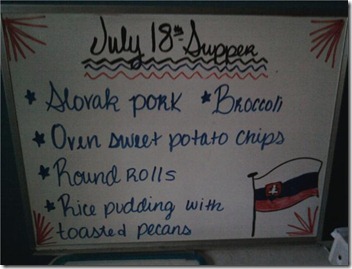 July 18th Supper
* Slovak pork * Broccoli
* Oven sweet potato chips
* Round Rolls
* Rice pudding with
toasted pecans